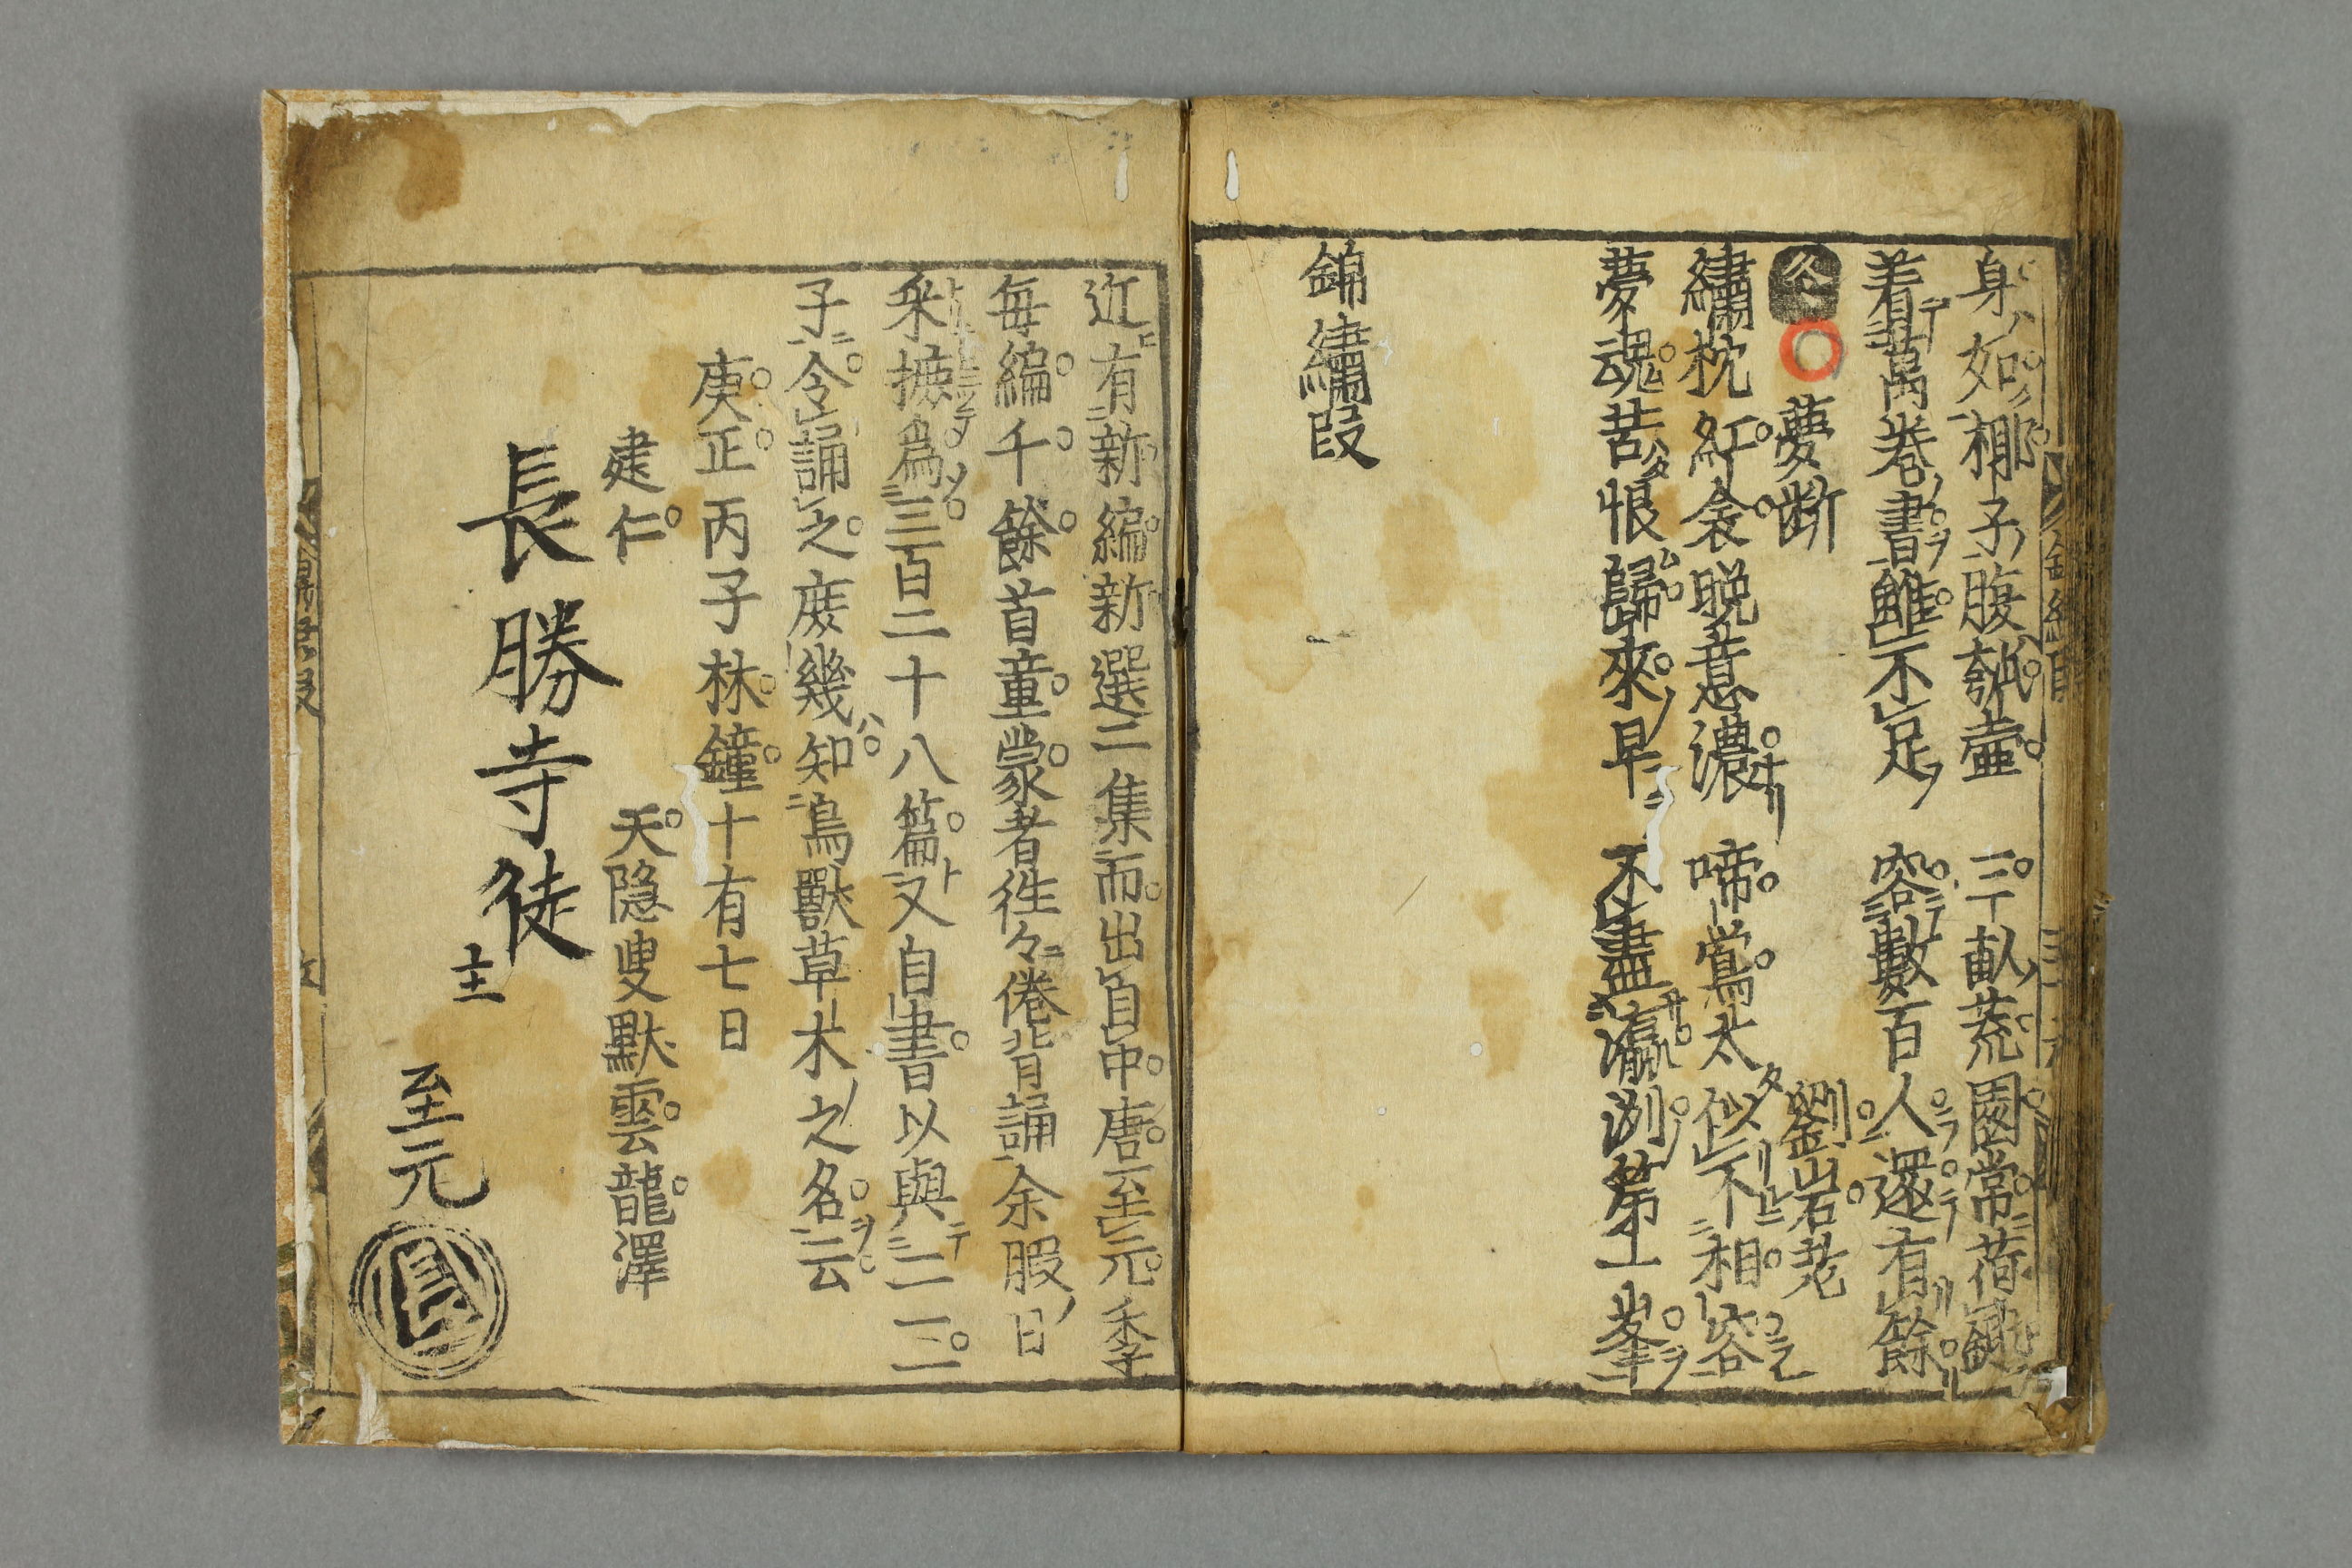 身如椰子腹瓠壷　三畒荒園常荷鋤
着萬巻書雖不足　容數百人還有餘
冬　夢断　劉岩老
繡枕紅衾晩意濃　啼鴬太似不相容
夢魂苦恨歸來早　不盡瀛洲第一峯
錦繡段
近有新編新選二集而出自中唐至元季
毎編千餘首童蒙者徃々倦背誦余暇日
采摭爲三百二十八篇又自書以與二三
子令誦之庻幾知鳥獸草木之名云
庚正丙子林鐘十有七日
建仁　天隠叟默雲龍澤
長勝寺徒
主
至元